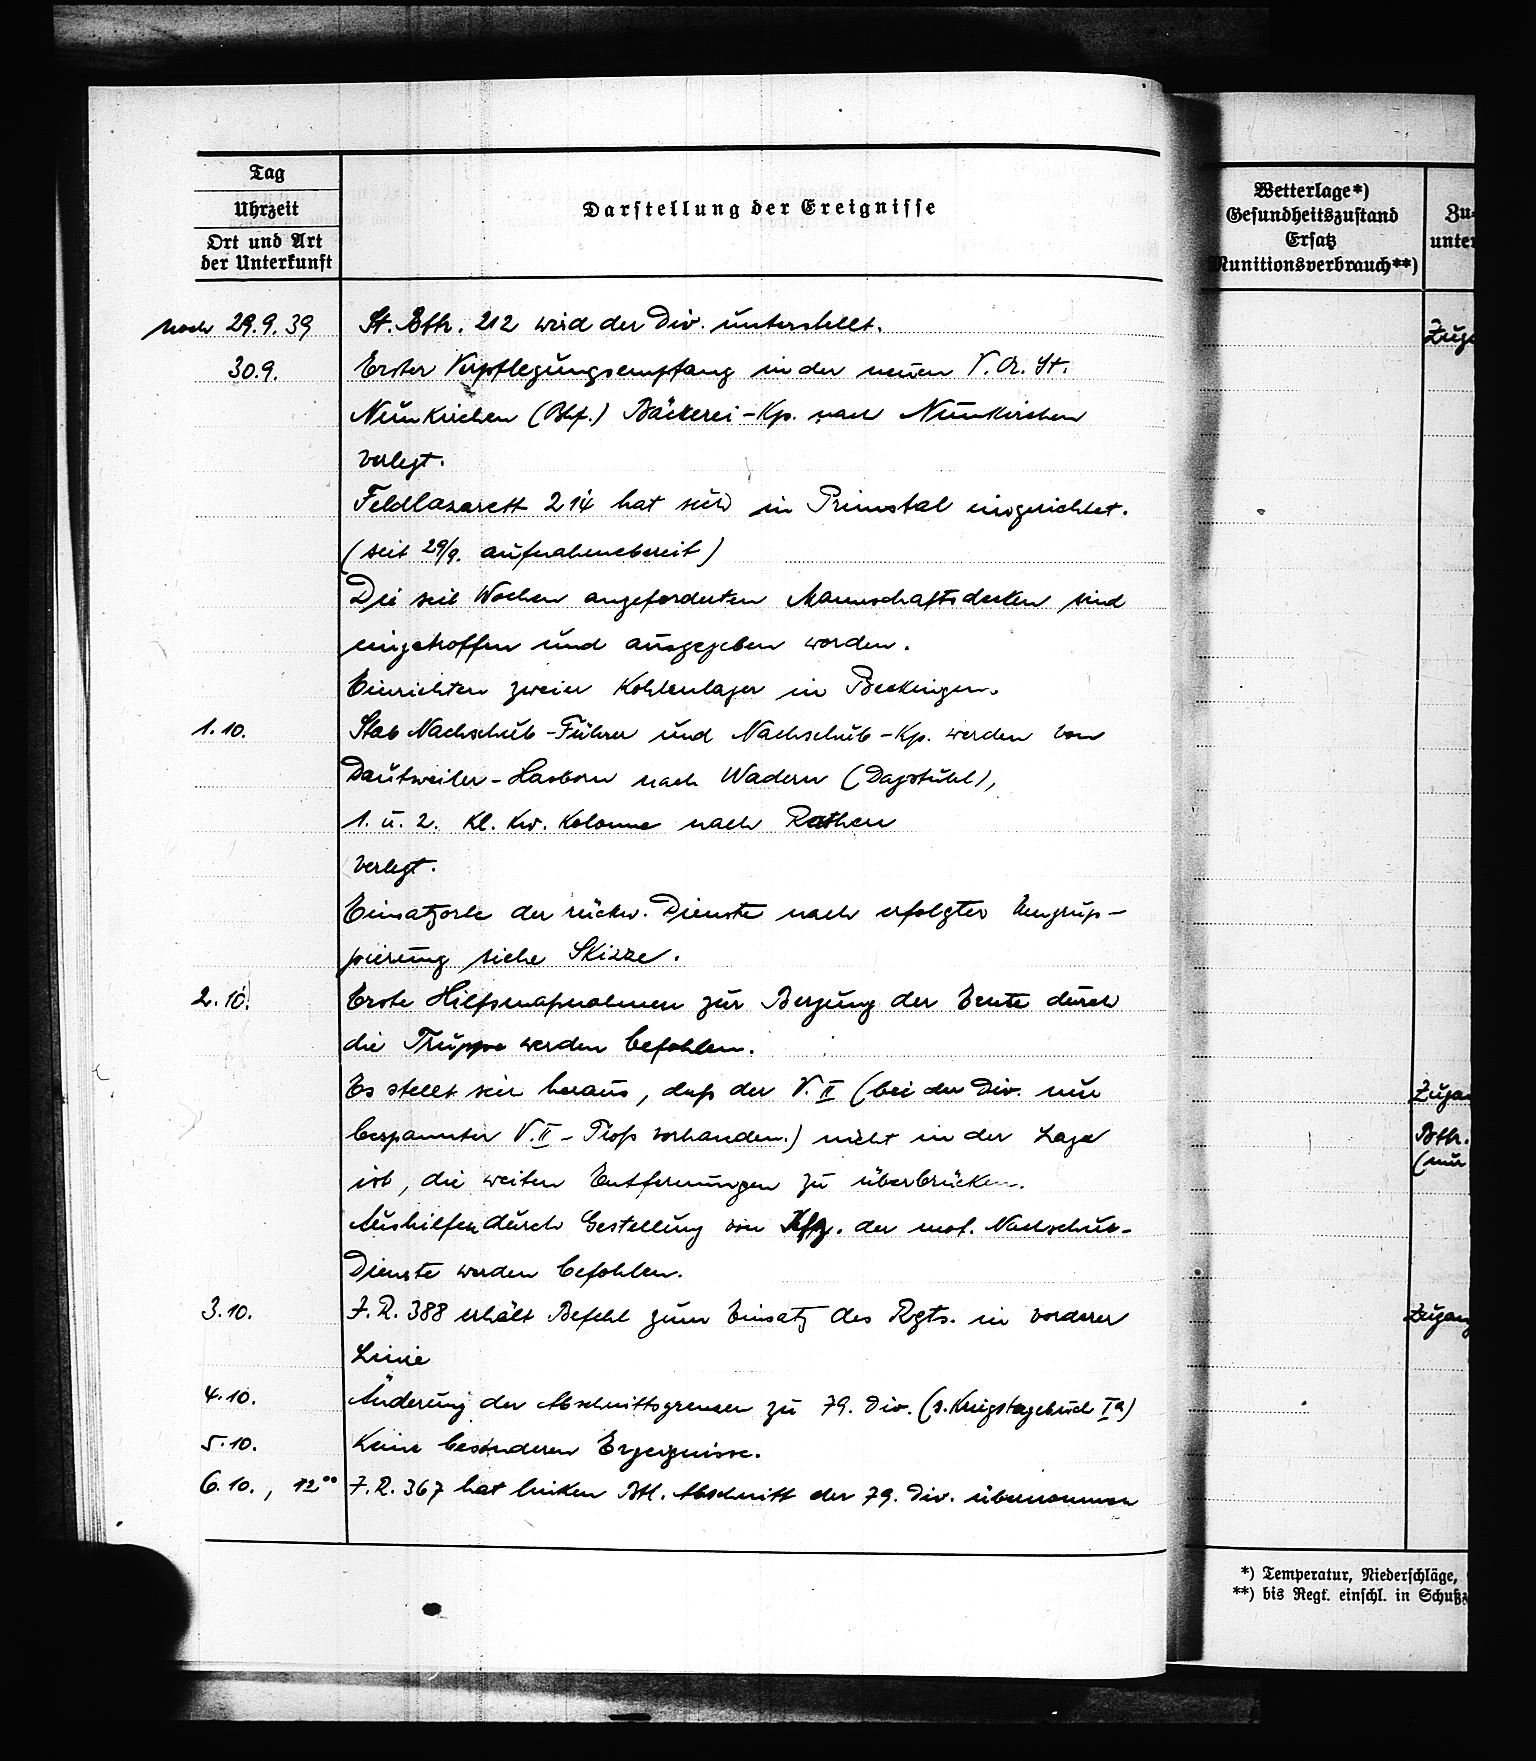 Tag
Uhrzeit
Ort und Art
der Unterkunft
Darstellung der Ereignisse
noch 29.9.39 St. Bttr. 212 wird der Div. unterstellt.
30.9. Erster Verpflegungsempfang in der neuen V.A.St.
Neunkirchen (Bhf.) Bäckerei-Kp. nach Neunkirchen
verlegt.
Feldlazarett 214 hat sich in Primstal eingerichtet.
(seit 29/9. aufnahmebereit)
Die seit Wochen angeforderten Mannschaftsdecken sind
eingetroffen und ausgegeben worden.
Einrichten zweier Kohlenlager in Beckingen.
1.10. Stab Nachschub-Führer und Nachschub-Kp. werden von
Dautweiler-Hasborn nach Wadern (Dagstuhl),
1. u. 2. Kl. Kw. Kolonne nach Rathen
verlegt.
Einsatzorte der rückw. Dienste nach erfolgter Umgrup-
pierung siehe Skizze.
2.10. Erste Hilfsmaßnahmen zur Bergung der Ernte durch
die Truppe werden befohlen.
Es stellt sich heraus, daß der V.II (bei der Div. nur
bespannter V.II-Troß vorhanden.) nicht in der Lage
ist, die weiten Entfernungen zu überbrücken.
Aushilfen durch Gestellung von Kfz. der mot. Nachschub-
Dienste werden befohlen.
3.10. J.R. 388 erhält Befehl zum Einsatz des Rgts. in vorderer
Linie
4.10. Änderung der Abschnittsgrenzen zu 79. Div. (s. Kriegstagebuch Ia)
5.10. Keine besonderen Ergeignisse.
6.10., 12⁰⁰ J.R. 367 hat linken Btl. Abschnitt der 79. Div. übernommen
Wetterlage*)
Gesundheitszustand
Ersatz
Munitionsverbrauch**)
Zu-
unter
Zuga
Zugan
Bttr.
(nur
Zugang
*) Temperatur, Niederschläge,
**) bis Regt. einschl. in Schuß